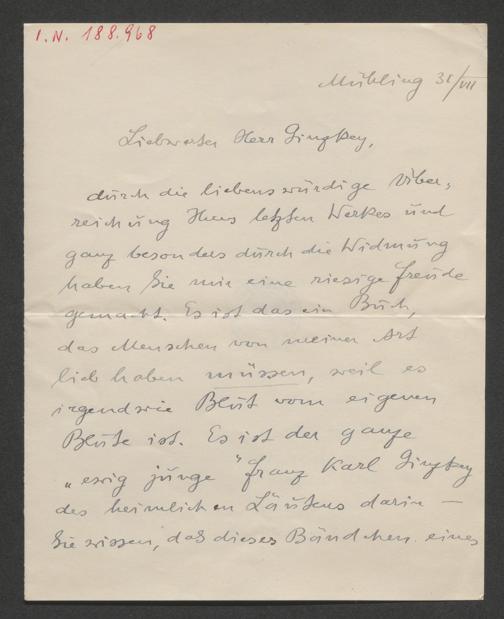 I.N. 188.968
Mühling 31/VII
Liebwerter Herr Ginzkey,
durch die liebenswürdige Über,
reichung Ihres letzten Werkes und
ganz besonders durch die Widmung
haben Sie mir eine riesige Freude
gemacht. Es ist das ein Buch,
das Menschen von meiner Art
lieb haben müssen, weil es
irgendwie Blut vom eigenen
Blute ist. Es ist der ganze
„ewig junge" Franz Karl Ginzkey
des heimlichen Läutens darin —
Sie wissen, daß dieses Bändchen eines